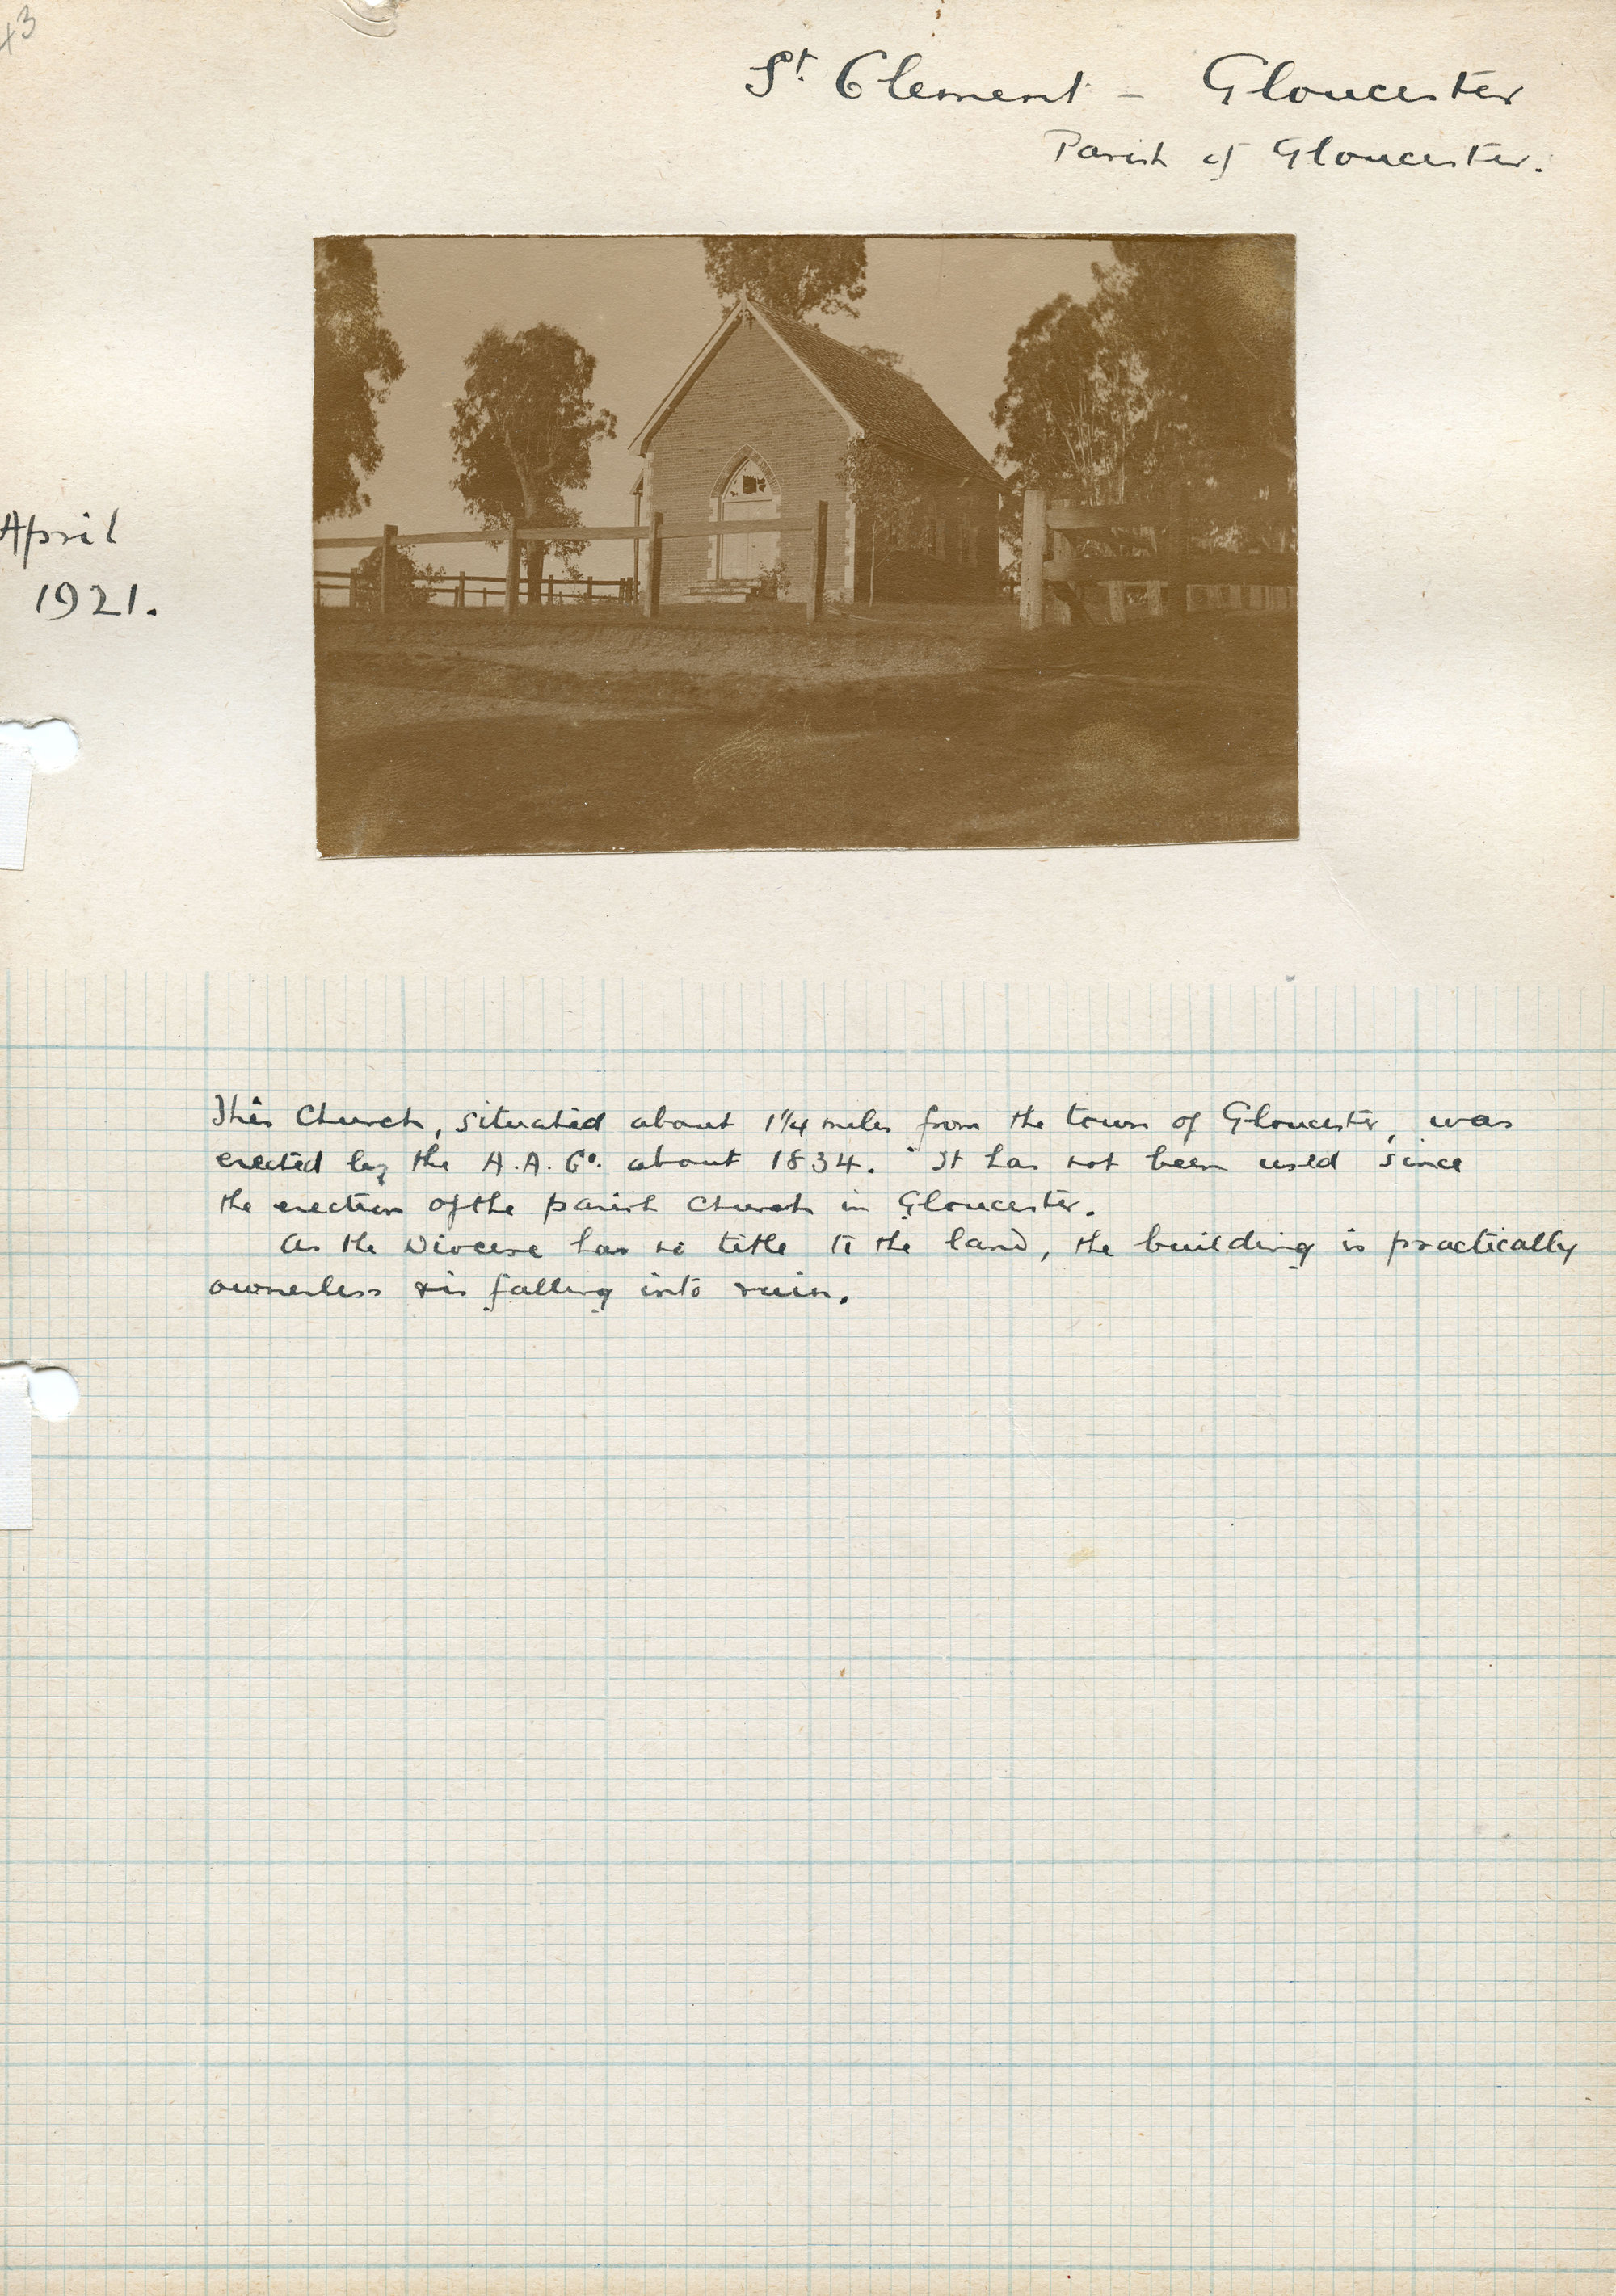 43
St. Clement - Gloucester
Parish of Gloucester.
April
1921.
This Church, situated about 1¼ miles from the town of Gloucester, was
erected by the A.A. Co. about 1834. It has not been used since
the erection of the parish church in Gloucester.
As the Diocese has no title to the land, the building is practically
ownerless & is falling into ruin.